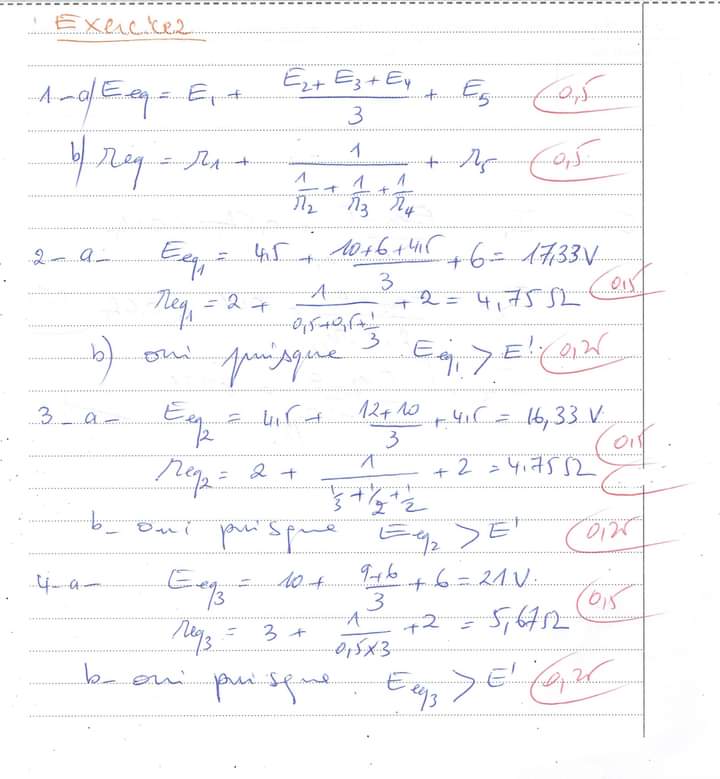 Exercice2
1-a/ Eeq = E1 + (E2 + E3 + E4)/3 + E5 0,5
b) req = r1 + 1/(1/r2 + 1/r3 + 1/r4) + r5 0,5
2-a- Eeq1 = 4,5 + (10+6+4,5)/3 + 6 = 17,33V
req1 = 2 + 1/(0,5+0,5+1/3) + 2 = 4,75Ω 0,5
b) oui puisque Eeq1 > E' 0,25
3-a- Eeq2 = 4,5 + (12+10)/3 + 4,5 = 16,33 V.
req2 = 2 + 1/(1/3+1/2+1/2) + 2 = 4.75Ω 0,5
b- oui puisque Eeq2 > E' 0,25
4-a- Eeq3 = 10 + (9+6)/3 + 6 = 21V.
req3 = 3 + 1/(0,5×3) + 2 = 5,67Ω 0,5
b- oui puisque. Eeq3 > E' 0,25